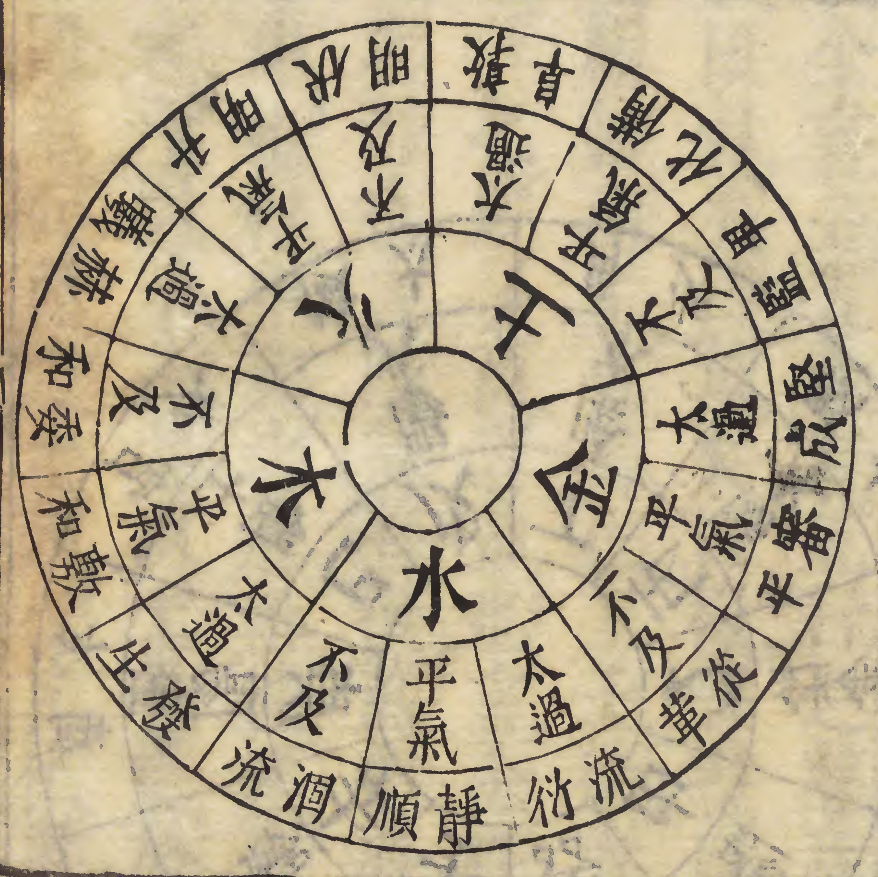 土
金
水
木
火
太過
平氣
不及
太過
平氣
不及
太過
平氣
不及
太過
平氣
不及
太過
平氣
不及
敦阜
備化
卑監
堅成
審平
從革
流衍
靜順
涸流
發生
敷和
委和
赫曦
升明
伏明